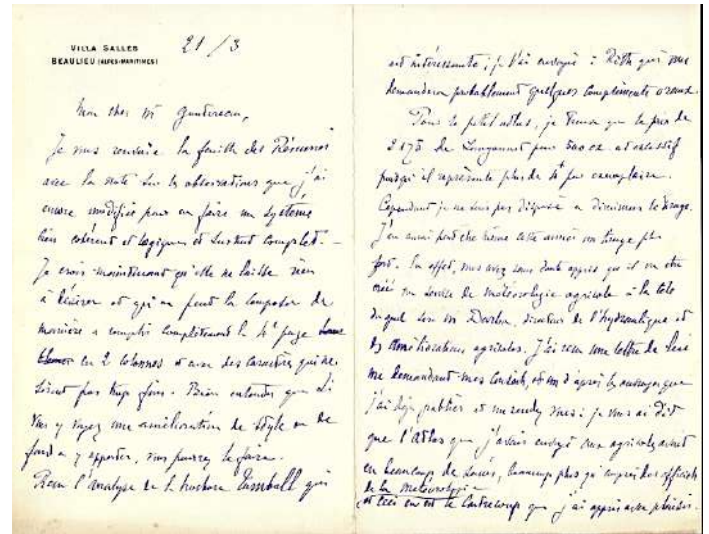 VILLA SALLES
BEAULIEU (ALPES-MARITIMES)
21/3
Mon cher Mr
Je vous renvoie la feuille des Résumés
avec la note sur les observations que j'ai
encore modifiée pour en faire un système
bien cohérent et logique et surtout complet. —
Je crois maintenant qu'elle ne laisse rien
à désirer et qu'on peut la composer de
manière à remplir complètement la 4e page
en 2 colonnes et avec des caractères qui ne
soient pas trop fins. Bien entendu que si
vous y voyez une amélioration de style ou de
fond à y apporter, vous pourrez le faire.
Reçu l'analyse de la brochure qui
est intéressante ; je l'ai envoyée à qui me
demandera probablement quelques compléments oraux.
Pour le petit atlas, je trouve que le prix de
2175 de pour 500 ex. est excessif
puisqu'il représente plus de 4f par exemplaire.
Cependant je ne suis pas disposé à diminuer le tirage.
J'en aurai peut être même cette année un tirage plus
fort. En effet, vous avez sans doute appris qu'il va être
créé un service de météorologie agricole à la tête
duquel sera Mr directeur de l'hydraulique et
des améliorations agricoles. J'ai reçu une lettre de lui
me demandant mes conseils, d'après les ouvrages que
j'ai déjà publiés et
que l'Atlas que j'avais envoyé aux agricoles avait
eu beaucoup de succès, beaucoup plus qu'auprès des officiels
de la météorologie
et ceci en est le contrecoup que j'ai appris avec plaisir.